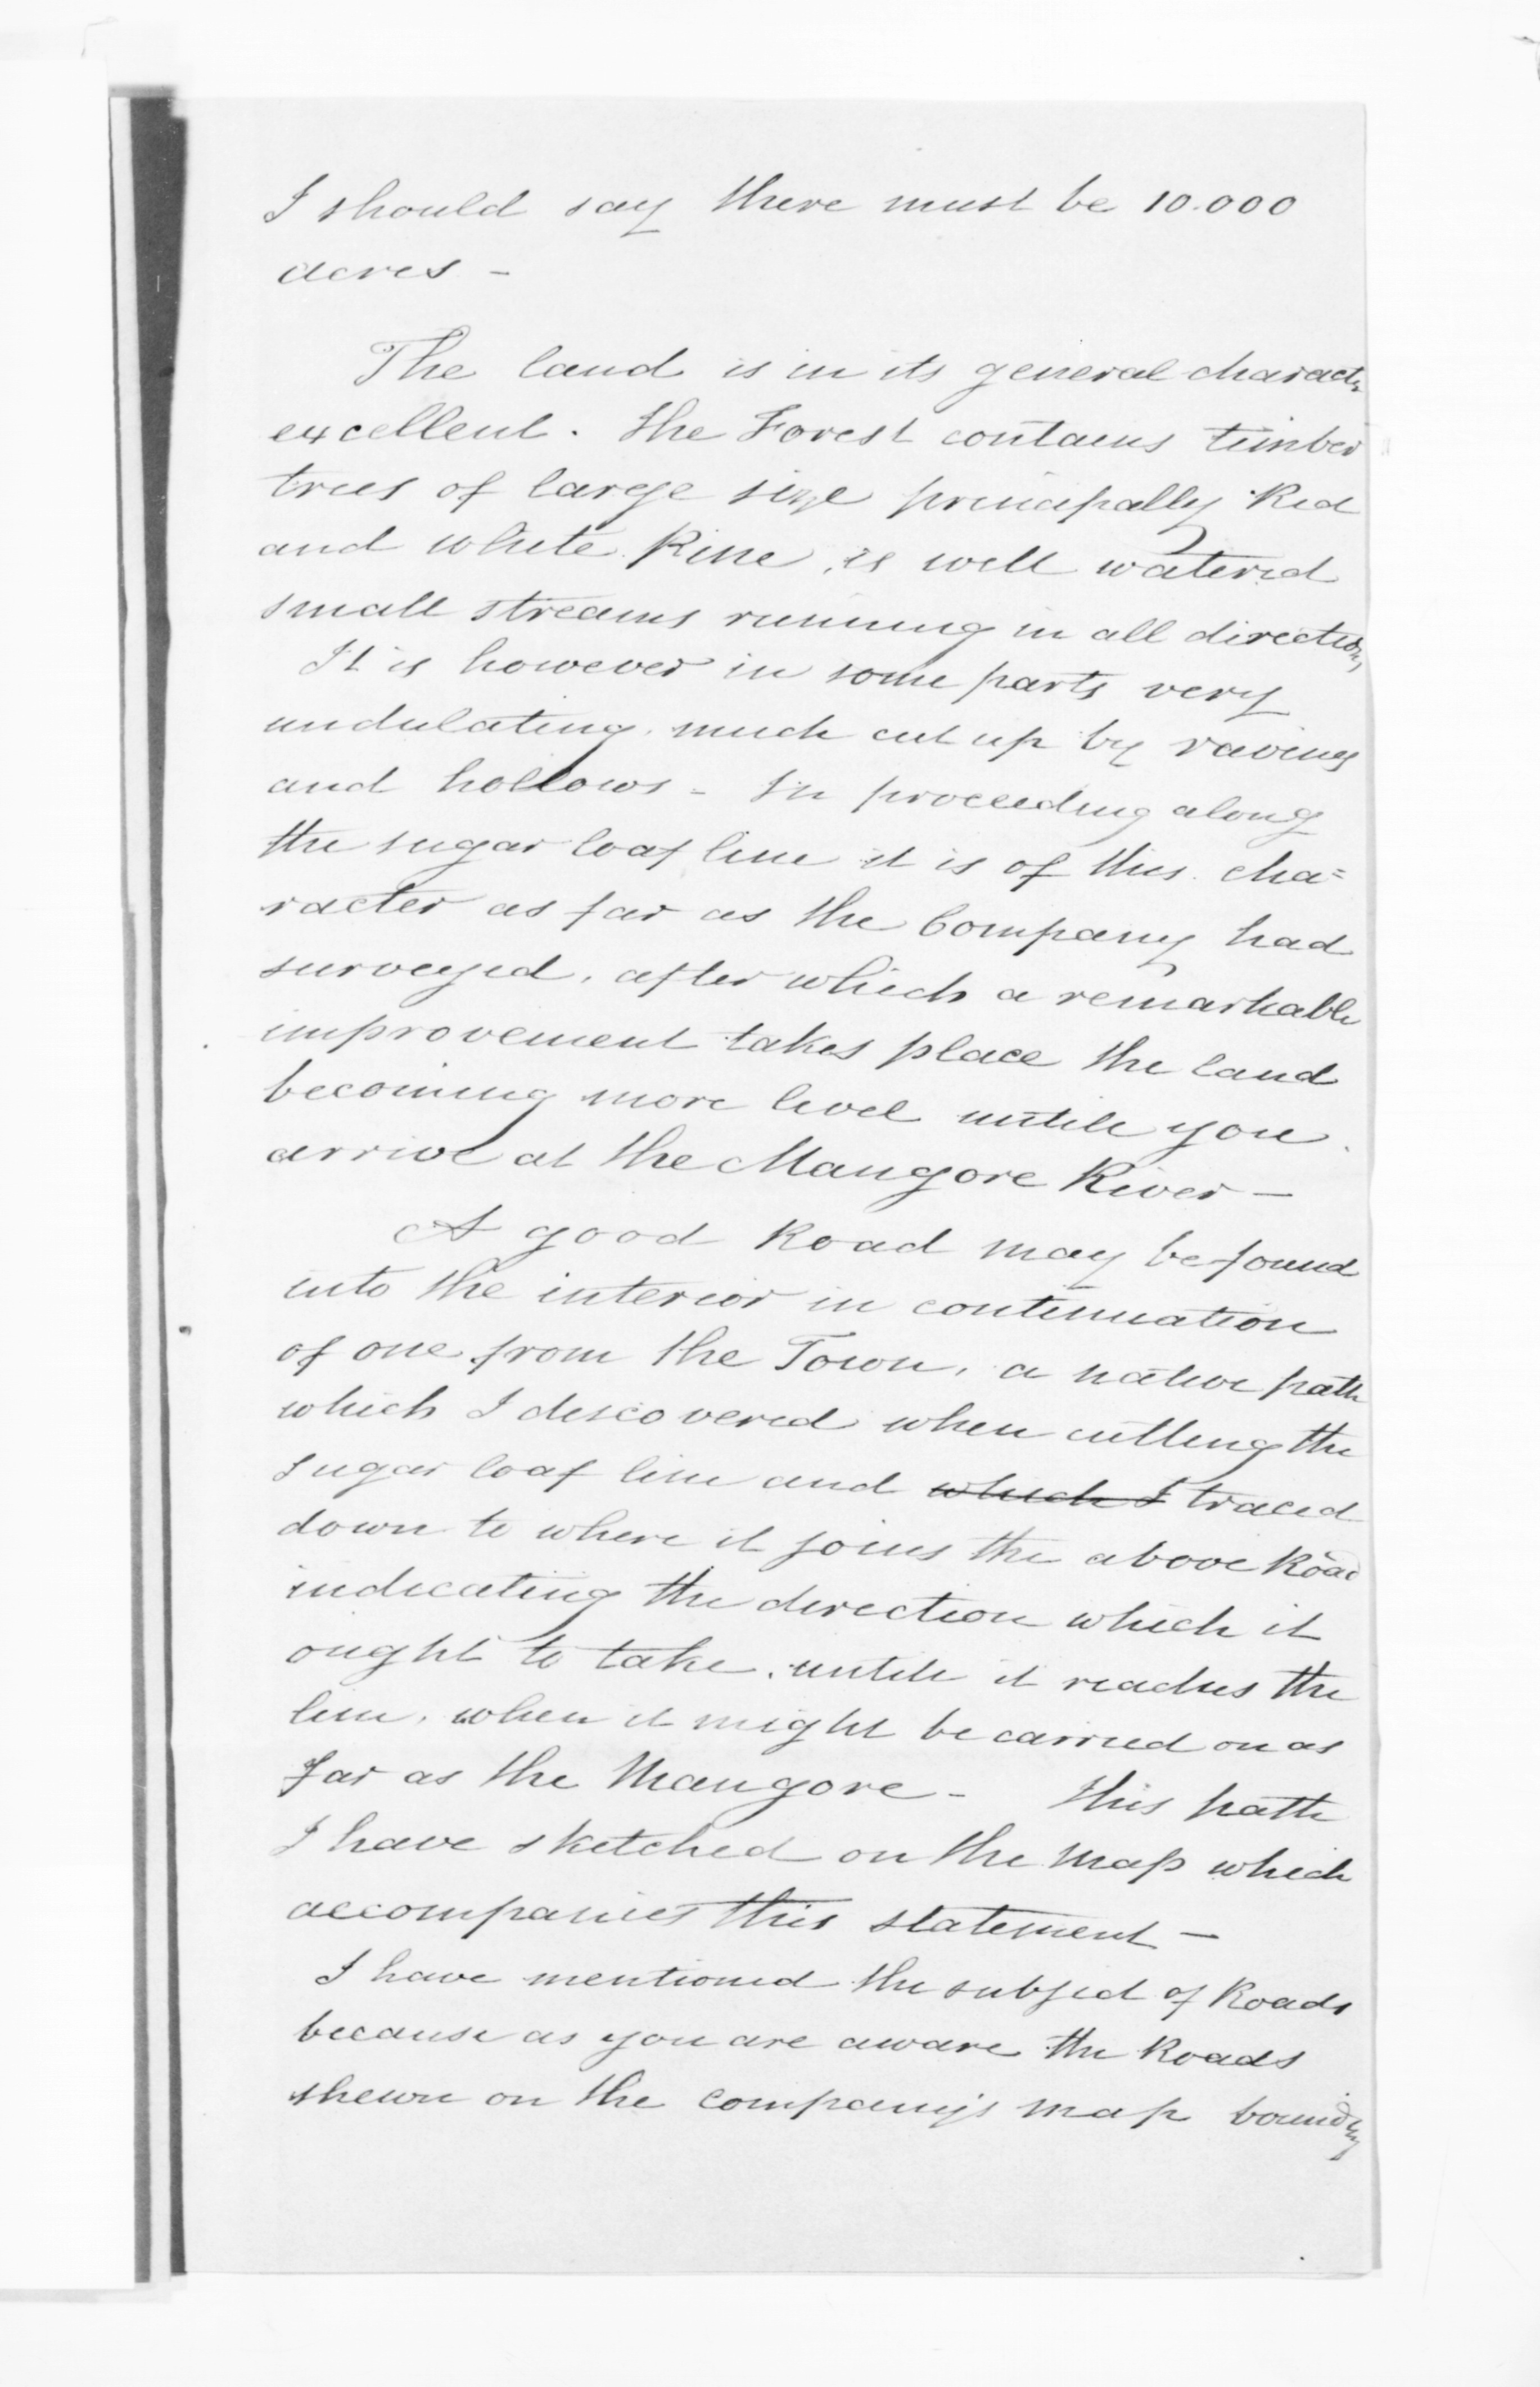 I should say there must be 10.000
acres -
The land is in its general character
excellent. The Forest contains timber
trees of large size principally Red
and white Pine, is well watered
small streams running in all directions,
It is however in some parts very
undulating, much cut up by ravines
and hollows - In proceeding along
the sugar loaf line it is of this cha=
racter as far as the Company had
surveyed, after which a remarkable
improvement takes place the land
becoming more level untill you
arrive at the Mangore River -
A good Road may be found
into the interior in continuation
of one from the Town, a native path
which I discovered when cutting the
sugar loaf line and which I traced
down to where it joins the above Road
indicating the direction which it
ought to take, untill it reaches the
line, when it might be carried on as
far as the Mangore - This path
I have sketched on the Map which
accompanies this statement -
I have mentioned the subject of Roads
because as you are aware the Roads
shewn on the Company's Map bounding